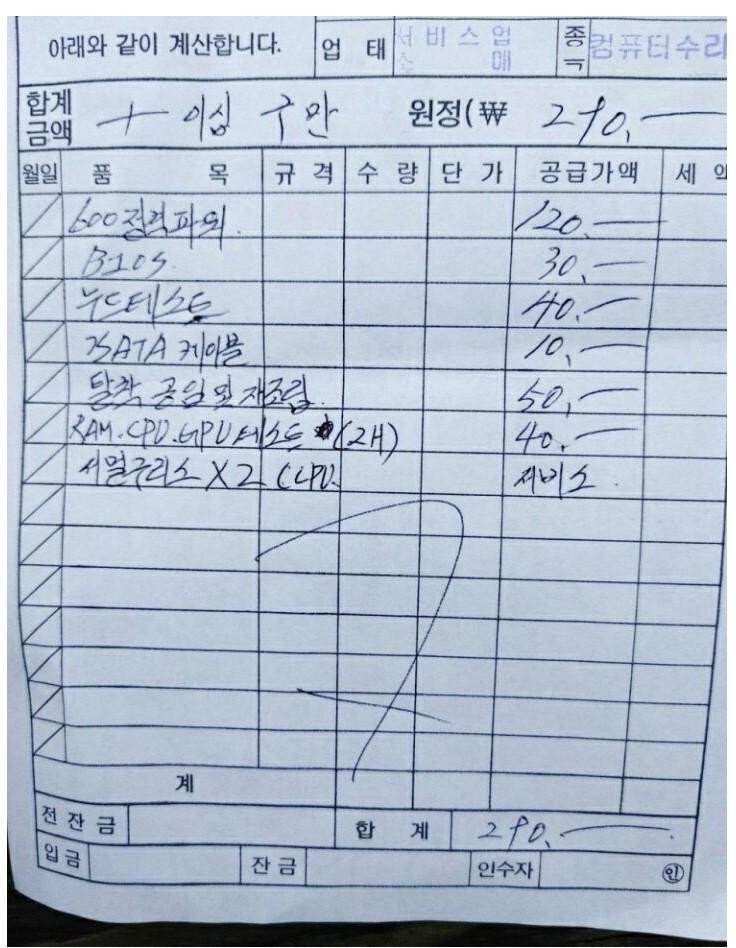 아래와 같이 계산합니다. 업 태 서비스업 소 매 종 컴퓨터수리
합계 금액 이십 구만 원정(₩ 290,—
월일 품 목 규 격 수 량 단 가 공급가액 세
600정격파워 120,—
BIOS 30,—
누드테스트 40,—
SATA 케이블 10,—
탈착 공임 및 재조립 50,—
RAM.CPU.GPU테스트 (2H) 40,—
써멀구리스 X2 (CPU 서비스
계
전잔금 합 계 290,—
입금 잔금 인수자 ㉑